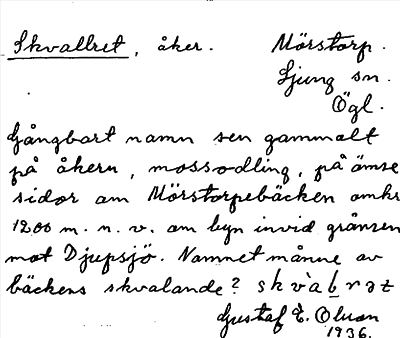 Skvallret, åker. Mörstorp.
Ljung sn.
Ögl.
Gångbart namn sen gammalt
på åkern, mossodling, på ömse
sidor om Mörstorpebäcken omkr
1200 m. n. v. om byn invid gränsen
mot Djupsjö. Namnet månne av
bäckens skvalande?
Gustaf E. Olsson
1936.